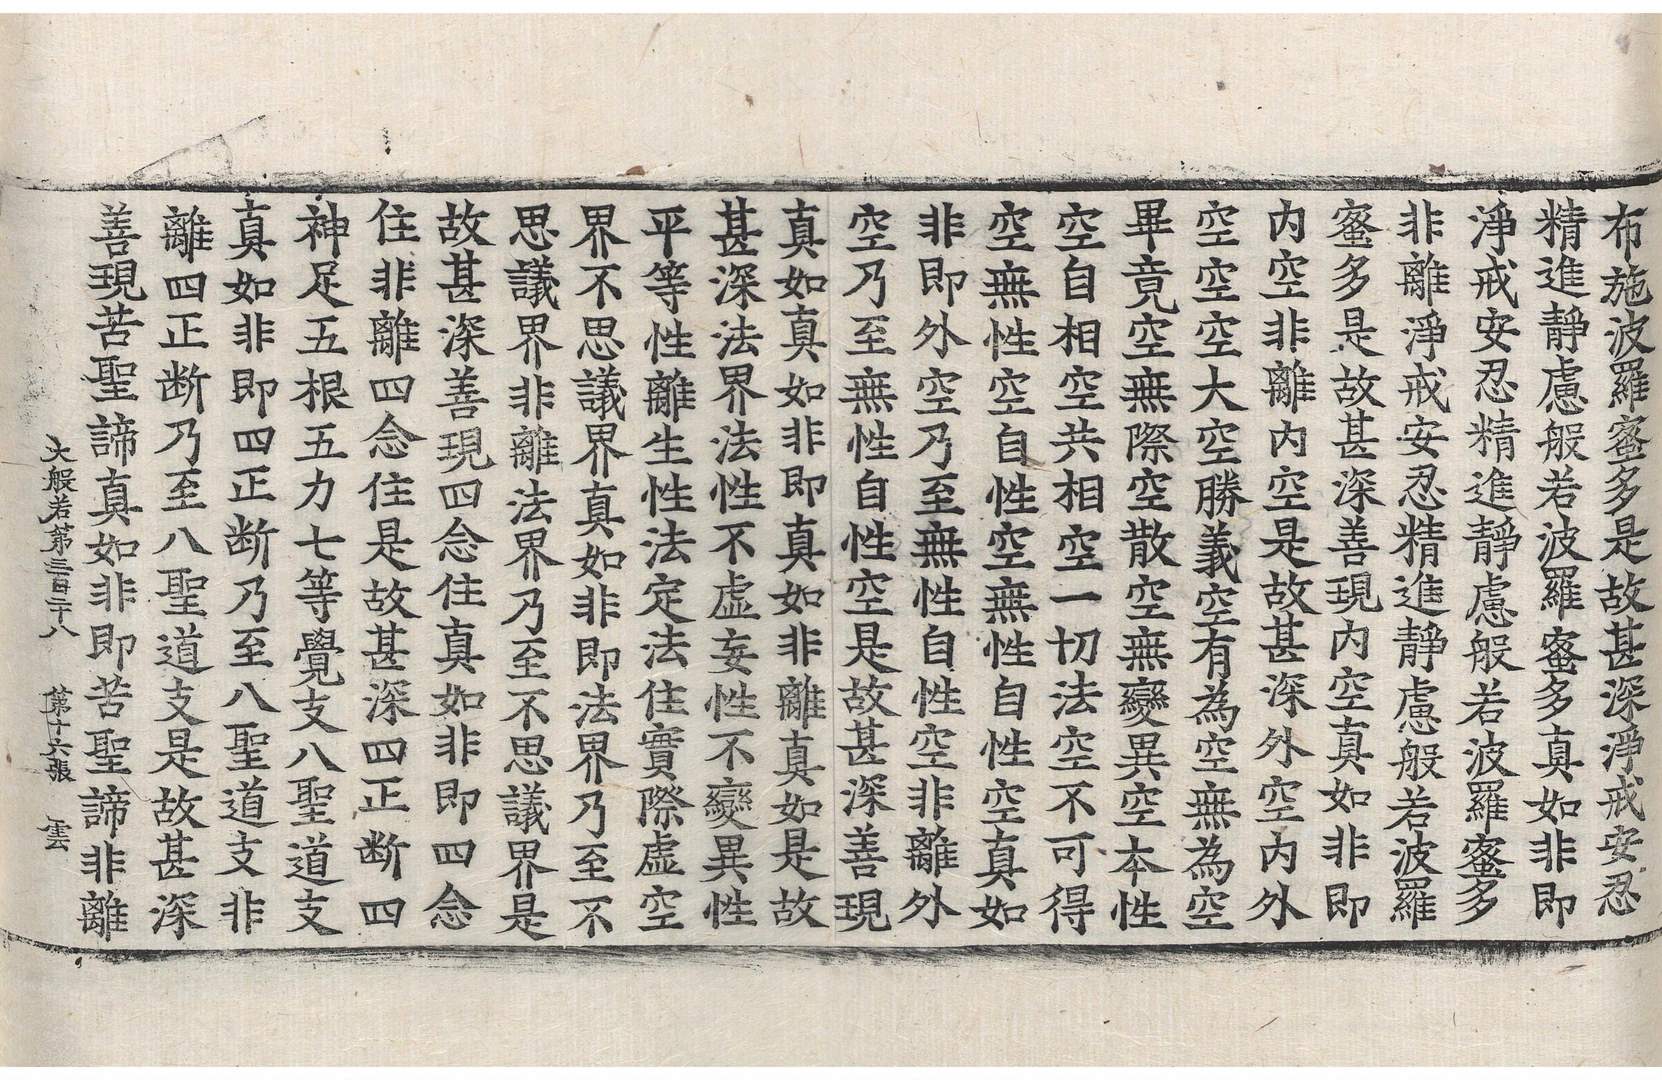 布施波羅蜜多是故甚深淨戒安忍
精進靜慮般若波羅蜜多真如非即
淨戒安忍精進靜慮般若波羅蜜多
非離淨戒安忍精進靜慮般若波羅
蜜多是故甚深善現內空真如非即
內空非離內空是故甚深外空內外
空空空大空勝義空有為空無為空
畢竟空無際空散空無變異空本性
空自相空共相空一切法空不可得
空無性空自性空無性自性空真如
非即外空乃至無性自性空非離外
空乃至無性自性空是故甚深善現
真如真如非即真如非離真如是故
甚深法界法性不虛妄性不變異性
平等性離生性法定法住實際虛空
界不思議界真如非即法界乃至不
思議界非離法界乃至不思議界是
故甚深善現四念住真如非即四念
住非離四念住是故甚深四正断四
神足五根五力七等覺支八聖道支
真如非即四正断乃至八聖道支非
離四正断乃至八聖道支是故甚深
善現苦聖諦真如非即苦聖諦非離
大般若第三百二十八 第十六張 雲